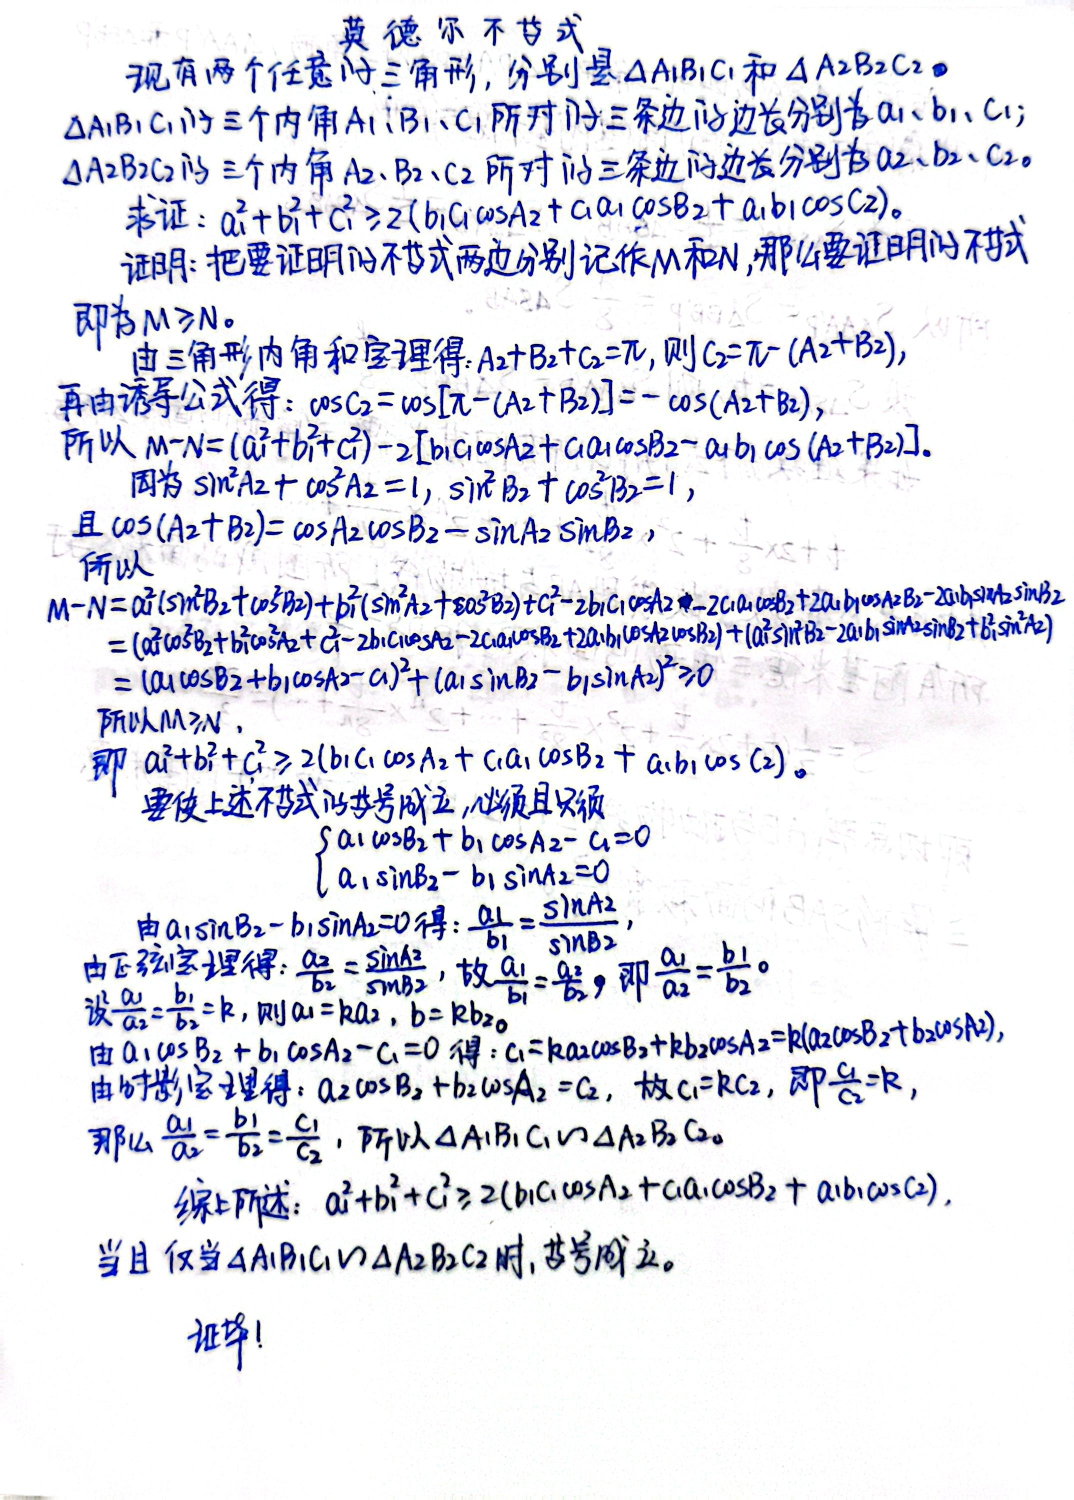 莫德尔不等式
现有两个任意的三角形，分别是△A1B1C1和△A2B2C2。
△A1B1C1的三个内角A1、B1、C1所对的三条边的边长分别为a1、b1、c1；
△A2B2C2的三个内角A2、B2、C2所对的三条边的边长分别为a2、b2、c2。
求证：a1²+b1²+c1²≥2(b1c1cosA2+c1a1cosB2+a1b1cosC2)。
证明：把要证明的不等式两边分别记作M和N，那么要证明的不等式
即为M≥N。
由三角形内角和定理得：A2+B2+C2=π，则C2=π-(A2+B2)，
再由诱导公式得：cosC2=cos[π-(A2+B2)]=-cos(A2+B2)，
所以M-N=(a1²+b1²+c1²)-2[b1c1cosA2+c1a1cosB2-a1b1cos(A2+B2)]。
因为sin²A2+cos²A2=1，sin²B2+cos²B2=1，
且cos(A2+B2)=cosA2cosB2-sinA2sinB2，
所以
M-N=a1²(sin²B2+cos²B2)+b1²(sin²A2+cos²B2)+c1²-2b1c1cosA2-2c1a1cosB2+2a1b1cosA2B2-2a1b1sinA2sinB2
=(a1²cos²B2+b1²cos²A2+c1²-2b1c1cosA2-2c1a1cosB2+2a1b1cosA2cosB2)+(a1²sin²B2-2a1b1sinA2sinB2+b1²sin²A2)
=(a1cosB2+b1cosA2-c1)²+(a1sinB2-b1sinA2)²≥0
所以M≥N，
即a1²+b1²+c1²≥2(b1c1cosA2+c1a1cosB2+a1b1cosC2)。
要使上述不等式的等号成立，必须且只须
{a1cosB2+b1cosA2-c1=0
a1sinB2-b1sinA2=0
由a1sinB2-b1sinA2=0得：a1/b1=sinA2/sinB2，
由正弦定理得：a2/b2=sinA2/sinB2，故a1/b1=a2/b2，即a1/a2=b1/b2。
设a1/a2=b1/b2=k，则a1=ka2，b=kb2。
由a1cosB2+b1cosA2-c1=0得：c1=ka2cosB2+kb2cosA2=k(a2cosB2+b2cosA2)，
由射影定理得：a2cosB2+b2cosA2=c2，故c1=kc2，即c1/c2=k，
那么a1/a2=b1/b2=c1/c2，所以△A1B1C1∽△A2B2C2。
综上所述：a1²+b1²+c1²≥2(b1c1cosA2+c1a1cosB2+a1b1cosC2)，
当且仅当△A1B1C1∽△A2B2C2时，等号成立。
证毕！